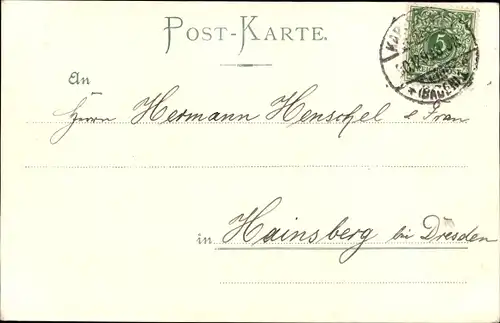 POST-KARTE.
5
(BADEN)
An
Herrn Hermann Henschel & Frau
in Hainsberg bei Dresden